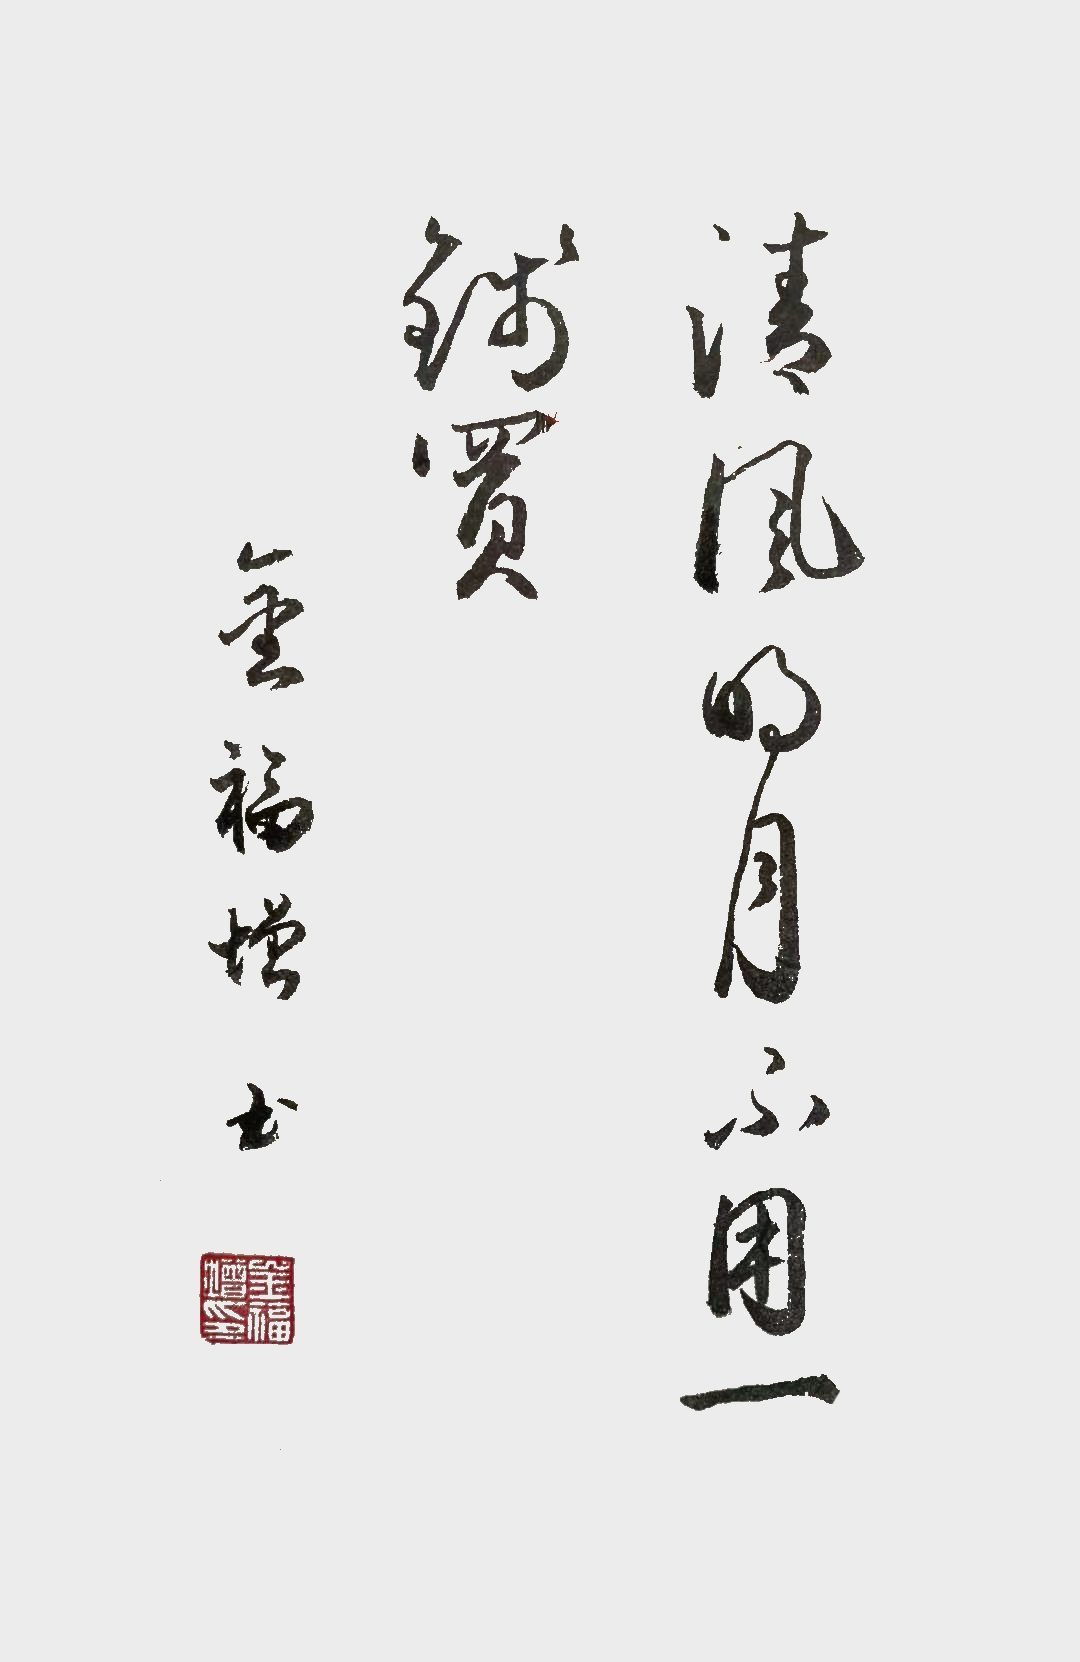 清风明月不用一
錢買
金福增书
金福
增印